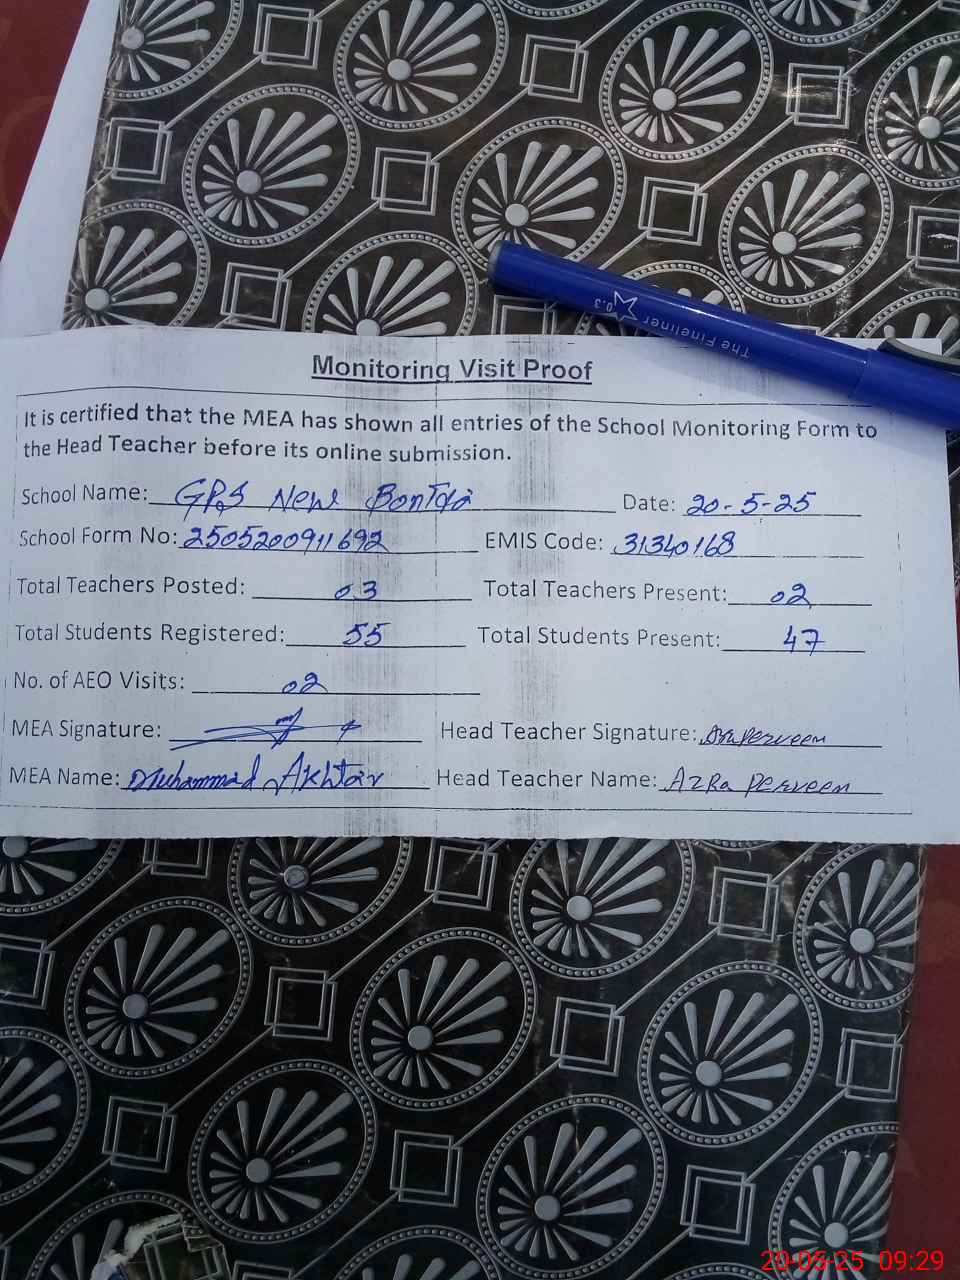 The Fineliner 0.3
Monitoring Visit Proof
It is certified that the MEA has shown all entries of the School Monitoring Form to
the Head Teacher before its online submission.
School Name: GPS New Date: 20-5-25
School Form No: 2505200911692 EMIS Code: 31340168
Total Teachers Posted: 03 Total Teachers Present: 02
Total Students Registered: 55 Total Students Present: 47
No. of AEO Visits: 02
MEA Signature: Head Teacher Signature:
MEA Name: Muhammad Akhtar Head Teacher Name: AZRa Perveen
20-05-25 09:29